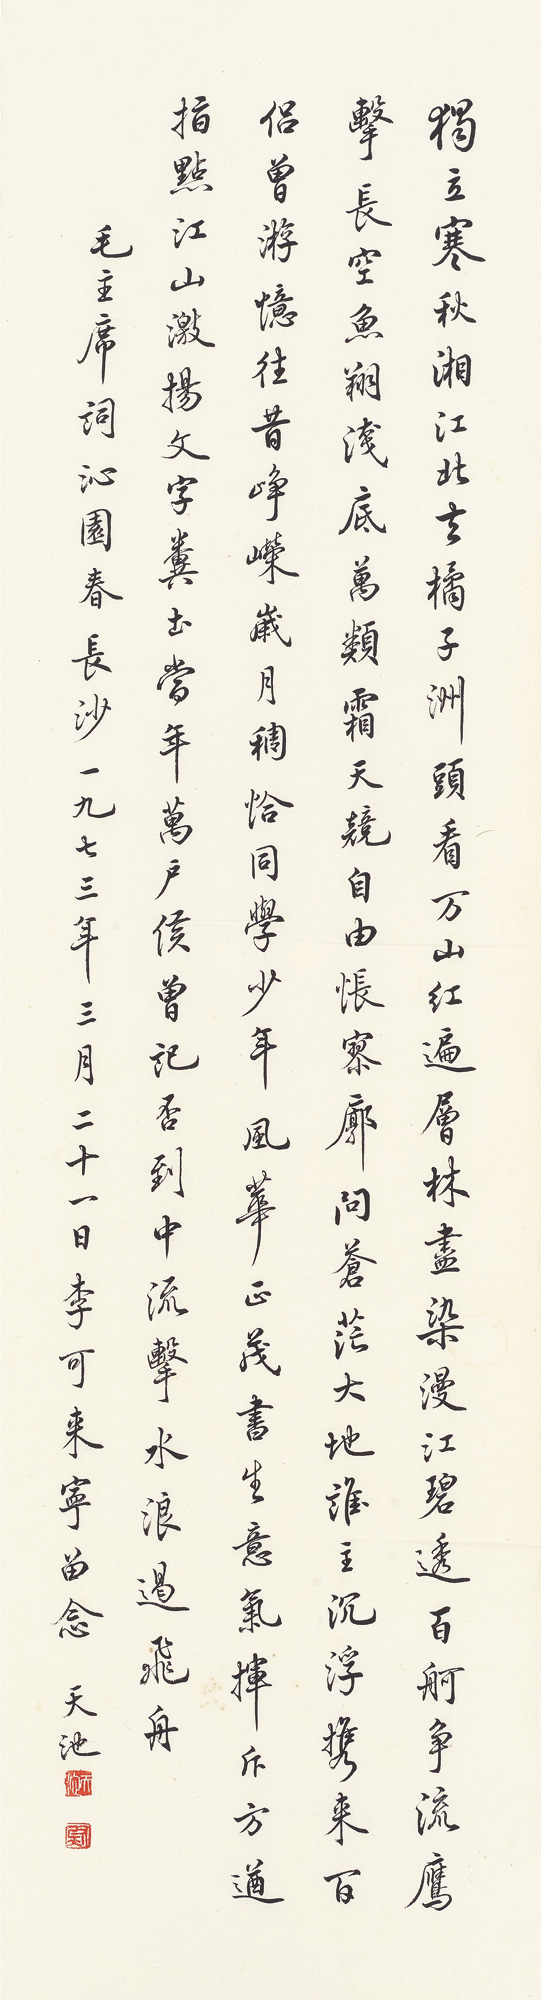 獨立寒秋湘江北去橘子洲頭看万山紅遍層林盡染漫江碧透百舸争流鷹
擊長空魚翔淺底萬類霜天競自由悵寥廓問蒼茫大地誰主沉浮携来百
侣曾游憶往昔崢嶸歲月稠恰同學少年風華正茂書生意氣揮斥方遒
指點江山激揚文字糞土當年萬户侯曾記否到中流擊水浪遏飛舟
毛主席詞沁園春長沙一九七三年三月二十一日李可来寧留念 天池